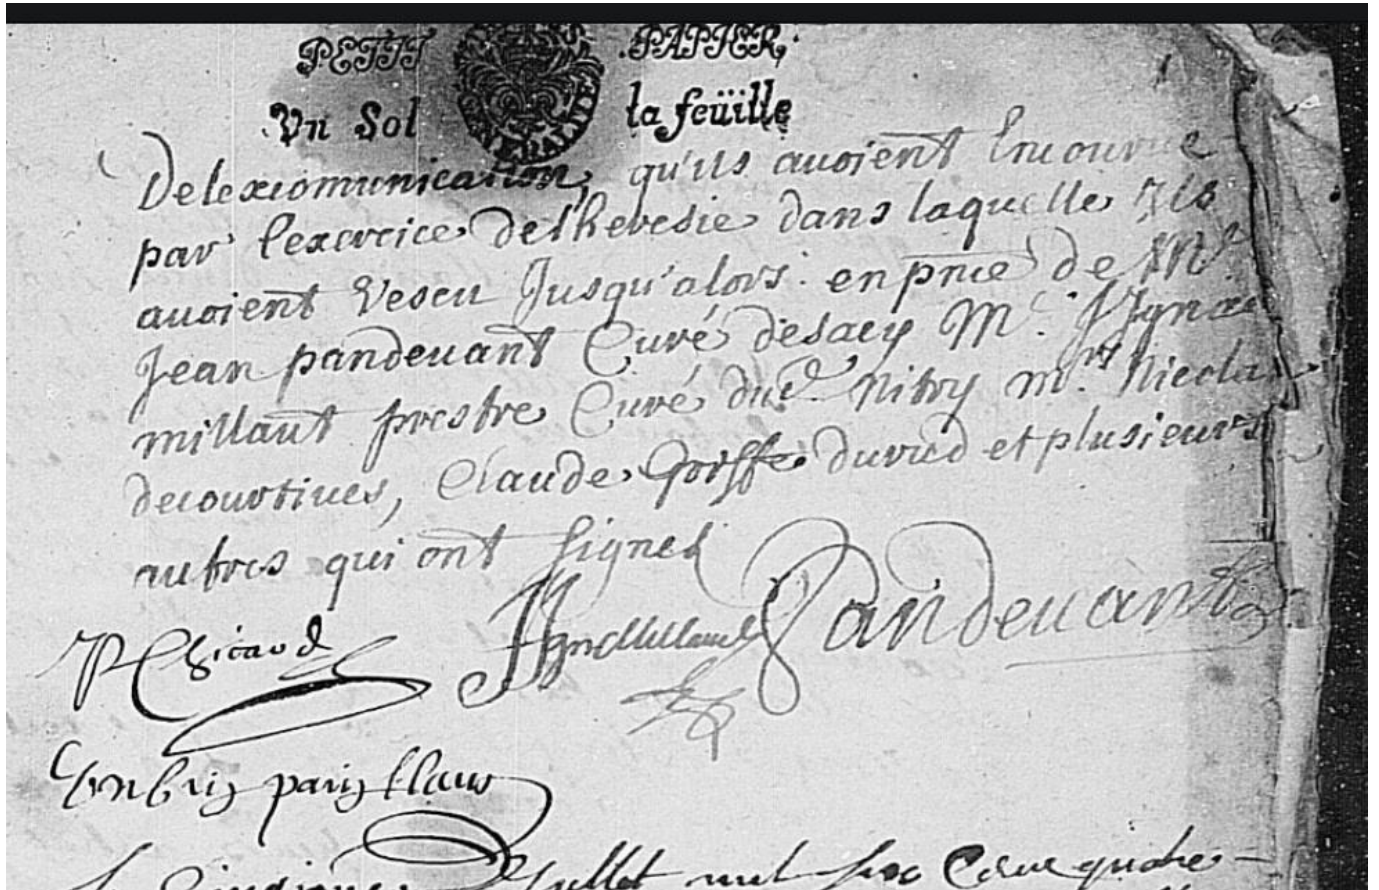 PETIT PAPIER,
Vn Sol la feüille
GENERALITE
De lexcomunication, qu'ils auoient Encourue
par l'exercice de lheresie dans laquelle Ils
auoient Vescu Jusqu'alors. en pnce de Mr.
Jean pandeuant Curé desacy Mr. Ygnace
millant prestre Curé dud. Nitry mrs. Nicolas
decourtiues, Claude duried et plusieurs
autres qui ont signez
Chicaud Pandeuant
paris
Juillet mil six Cens quatre